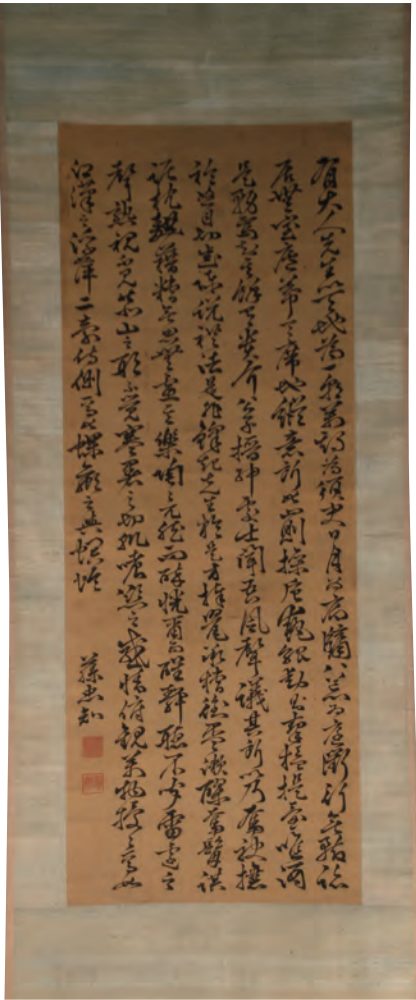 有大人先生以天地為一朝萬期為須臾日月為扃牖八荒為庭衢行無轍跡
居無室廬幕天席地縱意所如止則操卮執觚動則挈榼提壺唯酒
是務焉知其餘有貴介公子搢紳處士聞吾風聲議其所以乃奮袂攘
衿怒目切齒陳說禮法是非鋒起先生於是方捧罌承槽銜杯漱醪奮髯踑
踞枕麴藉糟無思無慮其樂陶々兀然而醉恍爾而醒靜聽不聞雷霆之
聲熟視不見泰山之形不覺寒暑之切肌嗜慾之感情俯觀萬物擾々焉如
江漢之浮萍二豪侍側焉如蜾蠃之與螟蛉
藤忠知